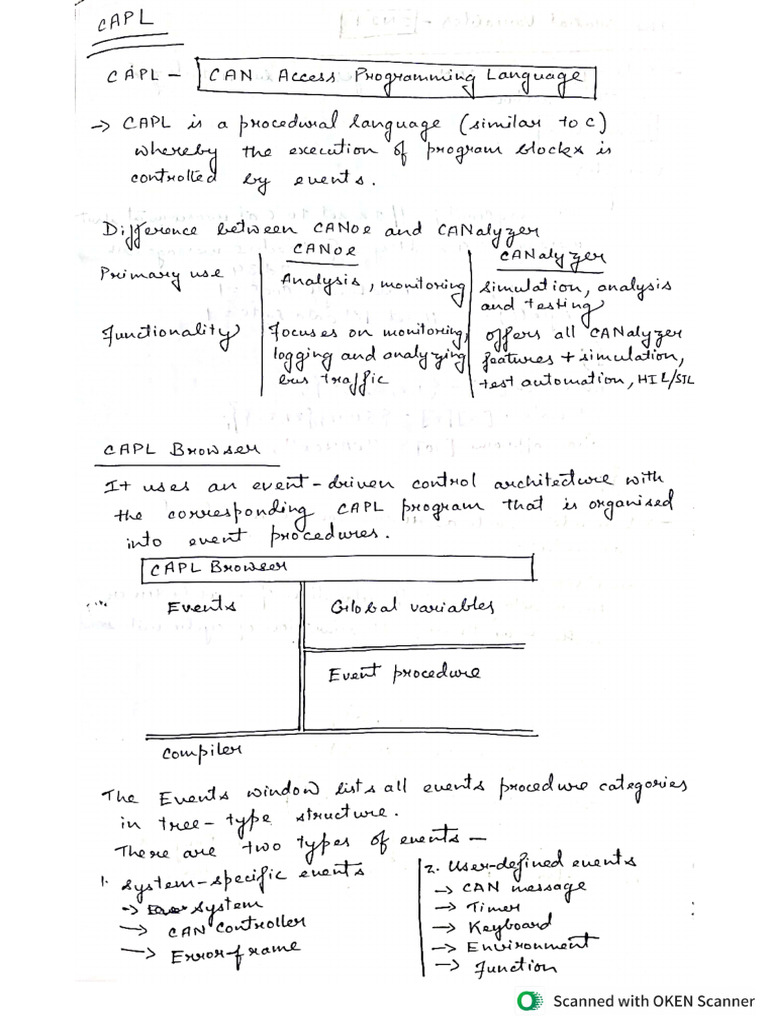 CAPL
CAPL - CAN Access Programming Language
→ CAPL is a procedural language (similar to C)
whereby the execution of program blocks is
controlled by events.
Difference between CANoe and CANalyzer
CANoe CANalyzer
Primary use Analysis, monitoring simulation, analysis
and testing
Functionality Focuses on monitoring, offers all CANalyzer
logging and analyzing features + simulation,
bus traffic test automation, HIL/SIL
CAPL Browser
It uses an event-driven control architecture with
the corresponding CAPL program that is organised
into event procedures.
CAPL Browser
Events Global variables
Event procedure
Compiler
The Events window lists all events procedure categories
in tree-type structure.
There are two types of events -
1. System-specific events
→ System
→ CAN Controller
→ Error-frame
2. User-defined events
→ CAN message
→ Timer
→ Keyboard
→ Environment
→ Function
Scanned with OKEN Scanner